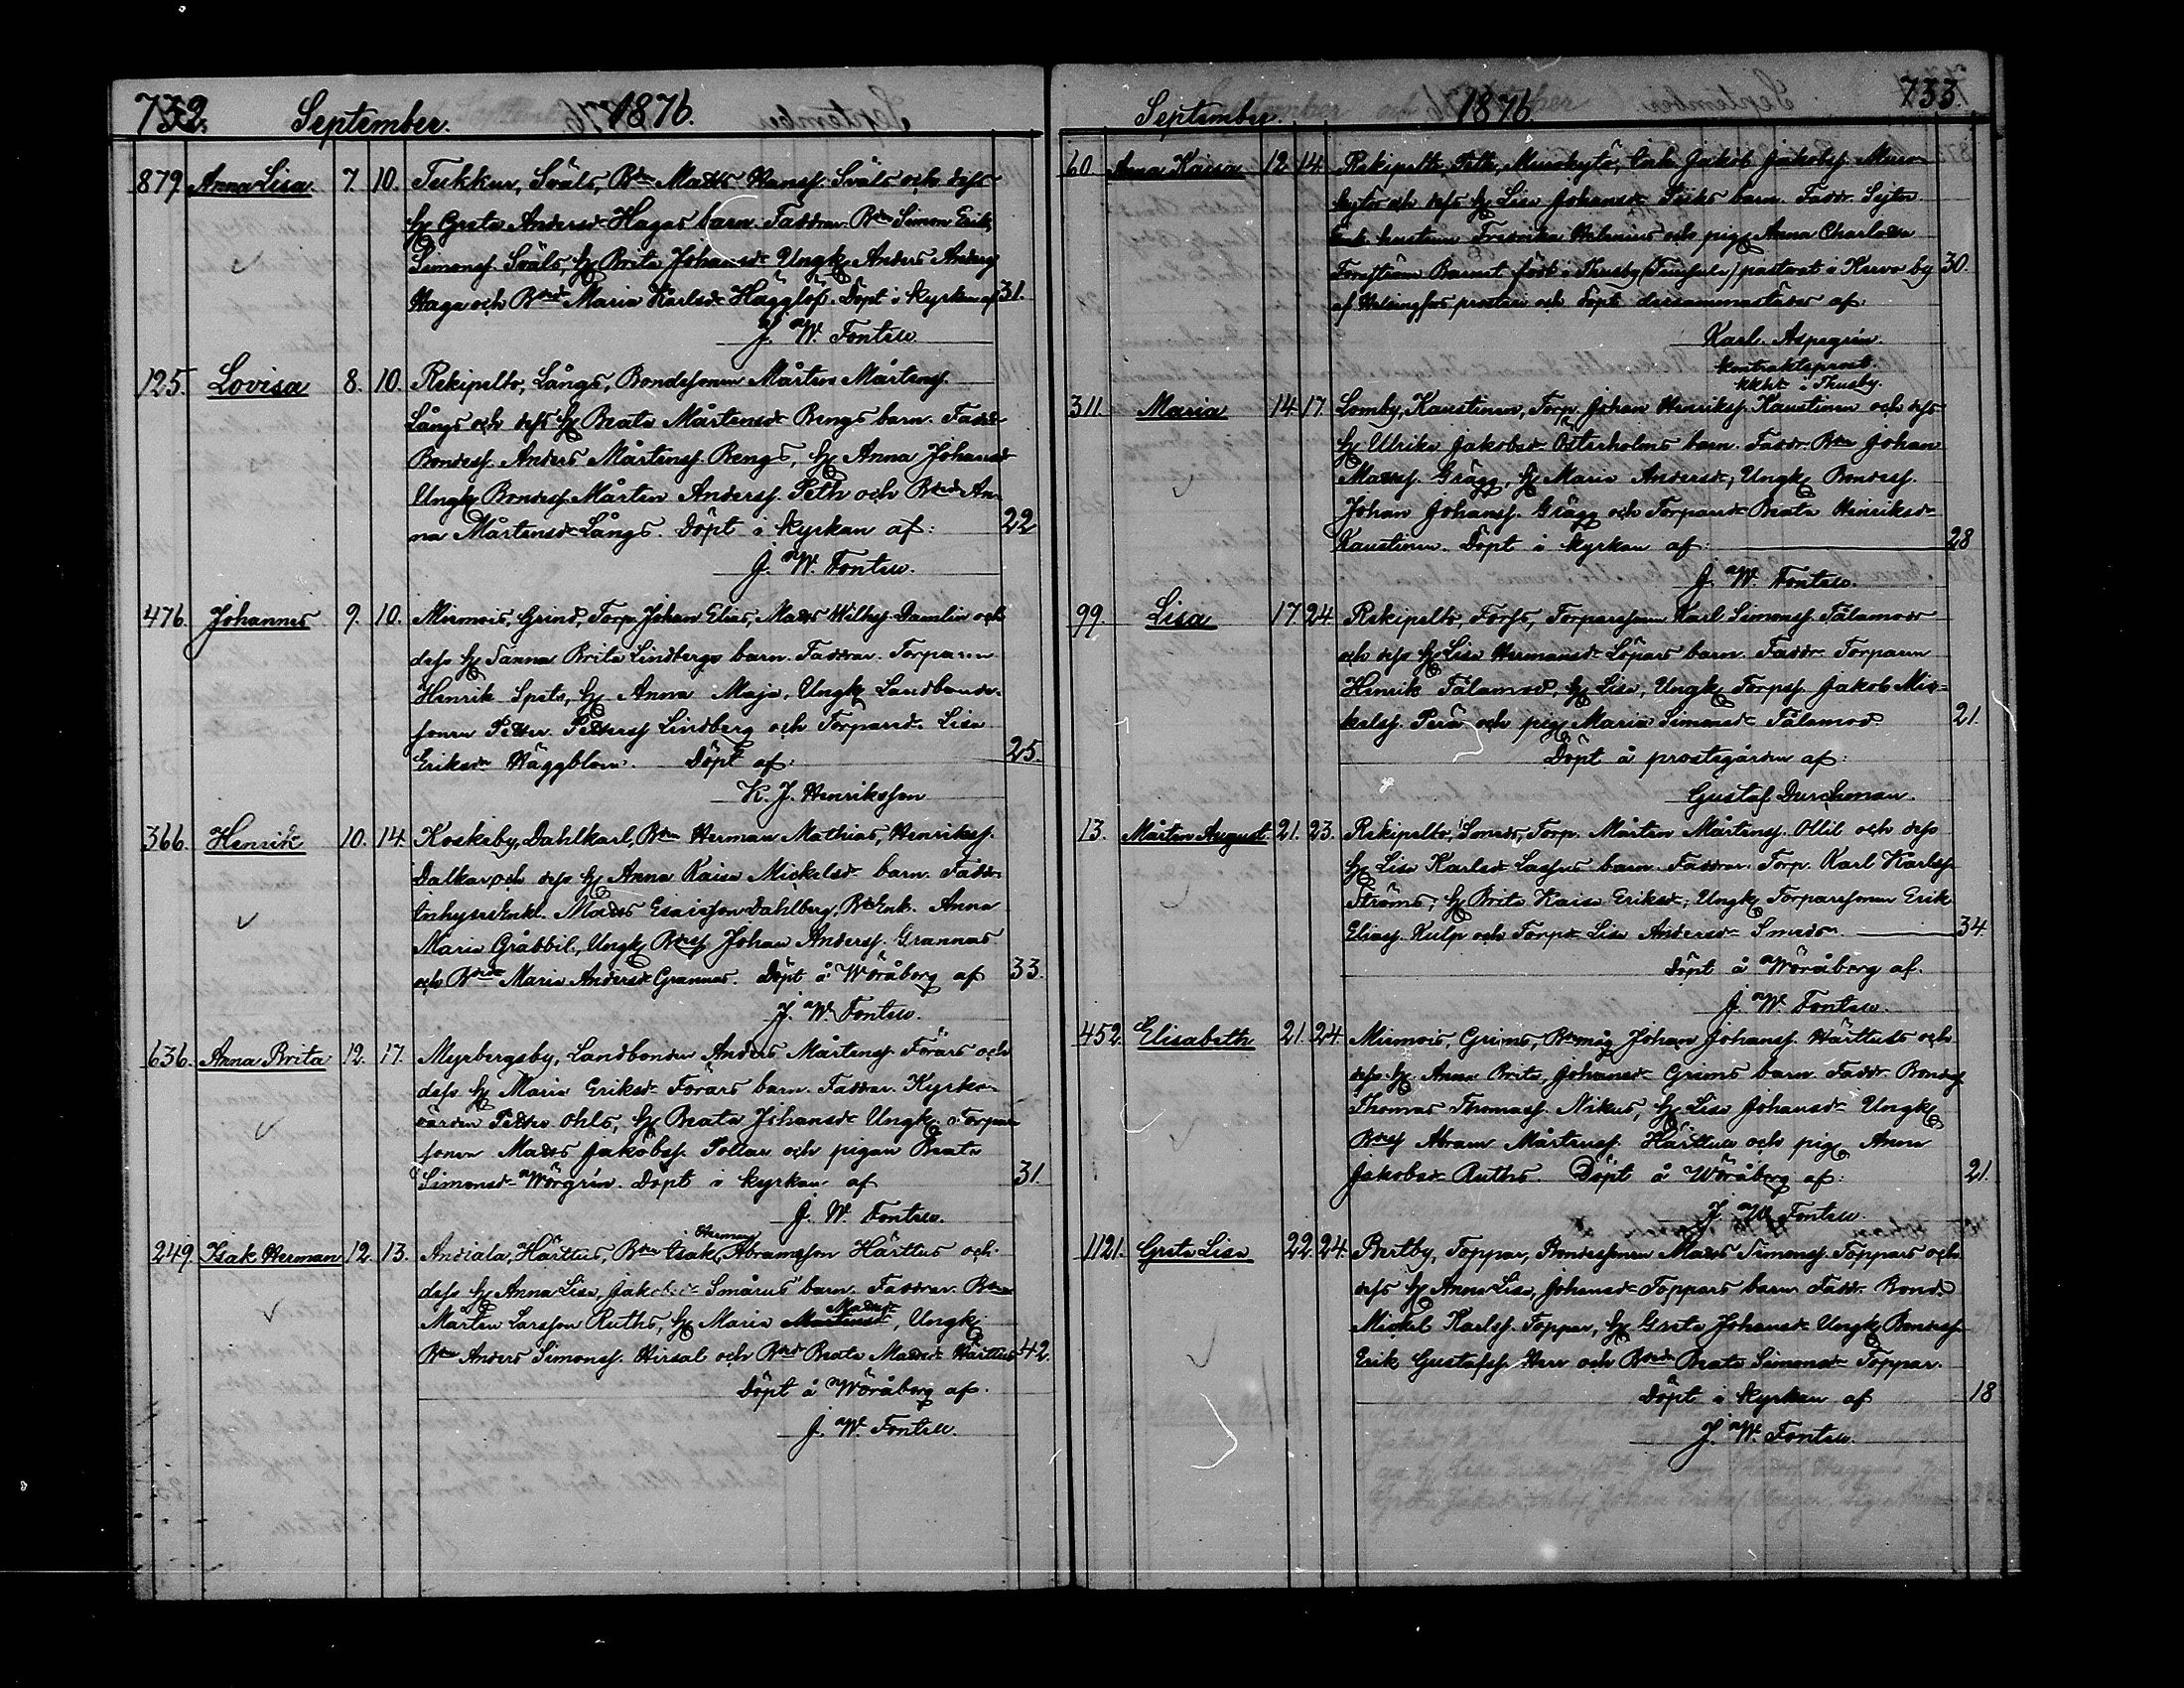 732. September. 1876.
879. Anna Lisa 7. 10. Tukkur, Sväls, Bdn Matts Hanss. Sväls och dess
Hu Greta Andersdr Hagas barn. Faddrar Bdn Simon Erik
Simonss. Sväls, Hu Brita Johansdr Ungk Anders Anderss
Haga och Bdr Maria Karlsdr Hägglöfs. Döpt i kyrkan af 31.
J. W. Fontell
125. Lovisa 8. 10. Rekipelto, Långs, Bondesonen Mårten Mårtenss.
Långs och dess Hu Beata Mårtensdr Bengs barn. Faddr
Bondes. Anders Mårtenss. Bengs, Hu Anna Johansdr
Ungk Bondes. Mårten Anderss. Peth och Bdr An-
na Mårtensdr Långs. Döpt i kyrkan af: 22
J. W. Fontell.
476. Johannes 9. 10. Miemois, Grind, Torp. Johan Elias, Matts Wilhss Damlin och
dess Hu Sanna Brita Lindbergs barn. Faddrar. Torparen
Henrik Spets, Hu Anna Maja, Ungk Landbonde-
sonen Petter Petterss Lindberg och Torpared. Lisa
Eriksdr Häggblom. Döpt af: 25.
K. J. Henriksson
366. Henrik 10. 14. Koskeby, Dahlkarl, Bdn Herman Mathias, Henrikss.
Dalkar och dess Hu Anna Kaisa Mickelsdr barn. Faddr
Inhyses Enkl. Matts Esaiasson Dahlberg, Bd Enk. Anna
Maria Gråbbil, Ungk Bdes Johan Anderss. Grannas
och Bdr Maria Andersdr Grannas. Döpt å Wöråberg af 33.
J. W. Fontell.
636. Anna Brita 12. 17. Myrbergsby, Landbonden Anders Mårtenss Förars och
dess Hu Maria Eriksdr Förars barn. Faddrar. Kyrko-
värden Petter Ohls, Hu Beata Johansdr Ungk. Torpare
sonen Matts Jakobss. Pollar och pigan Beata
Simonsdr Wörgrén. Döpt i kyrkan af 31.
J. W. Fontell.
249. Isak Herman 12. 13. Andiala, Härttus, Bdn Isak Herman Abramsson Härttus och
dess Hu Anna Lisa, Jakobsdr Smårus barn. Faddrar. Bdn
Mårten Larsson Ruths, Hu Maria Mattsdr, Ungk
Bdn Anders Simonss. Hirsal och Bdr Beata Mattsdr Härttus 42.
Döpt å Wöråberg af.
J. W. Fontell.
September. 1876. 733.
60 Anna Kaisa 12 14 Rekipelto, Peth, Muskytö, Enk. Jakob Jakobss
och dess Hu Lisa Johansdr barn. Faddr.
hustrun Fredrika Helenius och pig Anna Charlotta
Forsström Barnet född i Thusby pastorat i Kervo by 30.
af Helsingfors prosteri och döpt dersammastädes af:
Karl. Aspegrén.
kontraktsprost.
kkhde i Thusby.
311. Maria 14 17. Lomby, Kaustinen, Torp. Johan Henrikss. Kaustinen och dess
Hu Ulrika Jakobsdr Österholms barn. Faddr. Bdn Johan
Matss. Grägg, Hu Maria Andersdr, Ungk Bondes.
Johan Johanss. Grägg och Torpared. Beata Henriksdr
Kaustinen. Döpt i kyrkan af: 28
J. W. Fontell.
99. Lisa 17. 24 Rekipelto, Forss, Torparesonen Karl Simonss. Tälamod
och dess Hu Lisa Hermansdr Löpars barn. Faddr. Torparen
Henrik Tålamod, Hu Lisa, Ungk Torpss. Jakob Mic-
kelss. Perä och pig Maria Simonsdr Tålamod 21.
Döpt å prostgården af:
Gustaf Durchman.
13. Mårten August 21. 23. Rekipelto, Smeds, Torp. Mårten Mårtenss. Ollil och dess
Hu Lisa Karlsdr Lassus barn. Faddrar. Torp. Karl Karlss
Ströms, Hu Brita Kaisa Eriksdr, Ungk Torparesonen Erik
Eliass. Kulp och Torpdr Lisa Andersdr Smeds. 34.
Döpt å Wöråberg af.
J. W. Fontell.
452. Elisabeth 21. 24. Miemois, Grims, Bdmåg Johan Johanss. Härttus och
dess Hu. Anna Brita, Johansdr Grims barn. Faddr. Bondes
Thomas Thomass. Nikus, Hu Lisa Johansdr Ungk
Bdes Abram Mårtenss. Härttus och pig Anna
Jakobsdr Ruths. Döpt å Wöråberg af: 21.
J. W. Fontell.
1121. Greta Lisa 22. 24. Bertby, Toppar, Bondesonen Matts Simonss. Toppars och
dess Hu Anna Lisa, Johansdr Toppars barn. Faddr. Bond.
Mickel Karlss. Toppar, Hu Greta Johansdr Ungk Bondes
Erik Gustafss. Herr och Bdr Beata Simonsdr Toppar.
Döpt i kyrkan af 18
J. W. Fontell.